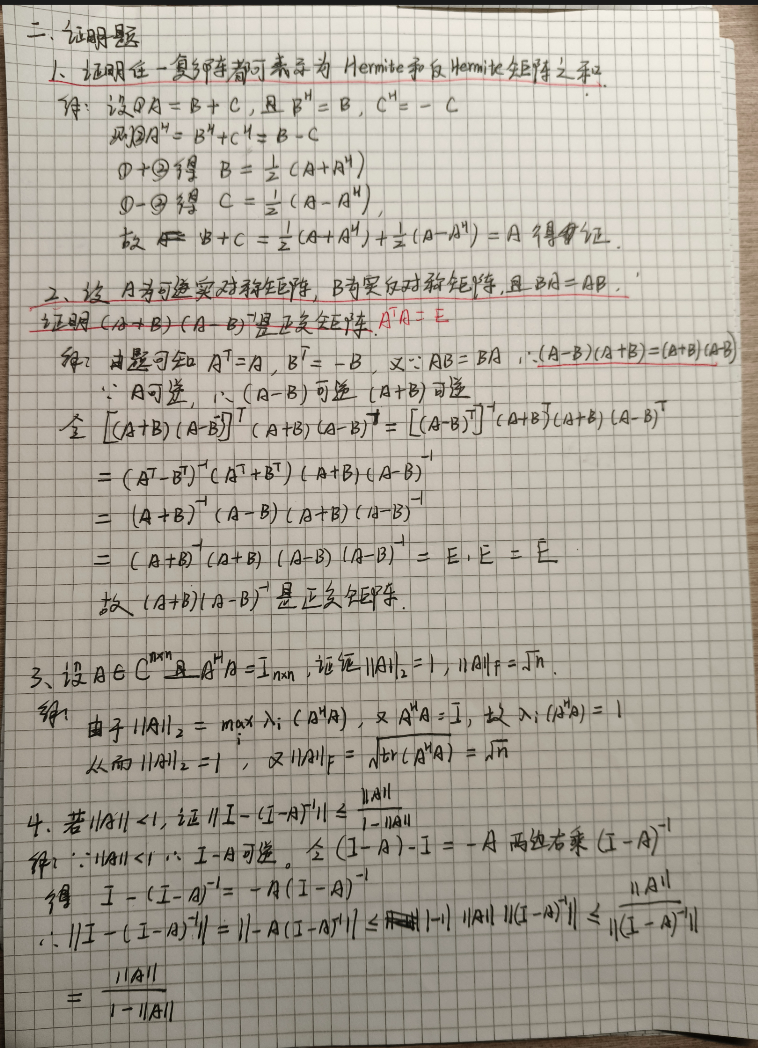 二、证明题
1、证明任一复矩阵都可表示为 Hermite和反Hermite矩阵之和.
解: 设①A = B + C, 且 B^H = B, C^H = - C
则②A^H = B^H + C^H = B - C
①+②得 B = 1/2 (A+A^H)
①-②得 C = 1/2 (A-A^H),
故 B+C = 1/2 (A+A^H) + 1/2 (A-A^H) = A 得证.
2、设 A为可逆实对称矩阵, B为实反对称矩阵, 且 BA = AB.
证明 (A+B)(A-B)^-1是正交矩阵. A^T A = E
解: 由题可知 A^T = A, B^T = -B, 又∵ AB = BA ∴(A-B)(A+B)=(A+B)(A-B)
∵ A可逆, ∴ (A-B)可逆 (A+B)可逆
令 [(A+B)(A-B)^-1]^T (A+B)(A-B)^-1 = [(A-B)^T]^-1 (A+B)^T (A+B)(A-B)^T
= (A^T-B^T)^-1 (A^T+B^T) (A+B) (A-B)^-1
= (A+B)^-1 (A-B) (A+B) (A-B)^-1
= (A+B)^-1 (A+B) (A-B) (A-B)^-1 = E·E = E
故 (A+B)(A-B)^-1 是正交矩阵.
3、设 A∈C^n×n 且 A^H A = I_n×n, 证 ||A||_2 = 1, ||A||_F = √n.
解: 由于 ||A||_2 = max_i λ_i (A^H A), 又 A^H A = I, 故 λ_i (A^H A) = 1
从而 ||A||_2 = 1, 又 ||A||_F = √tr(A^H A) = √n
4. 若||A|| < 1, 证 ||I - (I-A)^-1|| ≤ ||A|| / 1-||A||
解: ∵ ||A|| < 1 ∴ I-A可逆。令 (I-A) - I = -A 两边右乘 (I-A)^-1
得 I - (I-A)^-1 = -A (I-A)^-1
∴ ||I - (I-A)^-1|| = ||-A (I-A)^-1|| ≤ |-1| ||A|| ||(I-A)^-1|| ≤ ||A|| / ||(I-A)^-1||
= ||A|| / 1-||A||